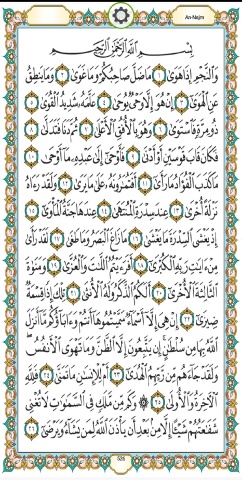 An-Najm
بِسْمِ اللَّهِ الرَّحْمَٰنِ الرَّحِيمِ
وَالنَّجْمِ إِذَا هَوَىٰ ١ مَا ضَلَّ صَاحِبُكُمْ وَمَا غَوَىٰ ٢ وَمَا يَنطِقُ
عَنِ الْهَوَىٰ ٣ إِنْ هُوَ إِلَّا وَحْيٌ يُوحَىٰ ٤ عَلَّمَهُ شَدِيدُ الْقُوَىٰ ٥
ذُو مِرَّةٍ فَاسْتَوَىٰ ٦ وَهُوَ بِالْأُفُقِ الْأَعْلَىٰ ٧ ثُمَّ دَنَا فَتَدَلَّىٰ ٨
فَكَانَ قَابَ قَوْسَيْنِ أَوْ أَدْنَىٰ ٩ فَأَوْحَىٰ إِلَىٰ عَبْدِهِ مَا أَوْحَىٰ ١٠
مَا كَذَبَ الْفُؤَادُ مَا رَأَىٰ ١١ أَفَتُمَارُونَهُ عَلَىٰ مَا يَرَىٰ ١٢ وَلَقَدْ رَءَاهُ
نَزْلَةً أُخْرَىٰ ١٣ عِندَ سِدْرَةِ الْمُنتَهَىٰ ١٤ عِندَهَا جَنَّةُ الْمَأْوَىٰ ١٥
إِذْ يَغْشَى السِّدْرَةَ مَا يَغْشَىٰ ١٦ مَا زَاغَ الْبَصَرُ وَمَا طَغَىٰ ١٧ لَقَدْ رَأَىٰ
مِنْ ءَايَٰتِ رَبِّهِ الْكُبْرَىٰ ١٨ أَفَرَءَيْتُمُ اللَّٰتَ وَالْعُزَّىٰ ١٩ وَمَنَوٰةَ
الثَّالِثَةَ الْأُخْرَىٰ ٢٠ أَلَكُمُ الذَّكَرُ وَلَهُ الْأُنثَىٰ ٢١ تِلْكَ إِذًا قِسْمَةٌ
ضِيزَىٰ ٢٢ إِنْ هِيَ إِلَّا أَسْمَاءٌ سَمَّيْتُمُوهَا أَنتُمْ وَءَابَاؤُكُم مَّا أَنزَلَ
اللَّهُ بِهَا مِن سُلْطَٰنٍ إِن يَتَّبِعُونَ إِلَّا الظَّنَّ وَمَا تَهْوَى الْأَنفُسُ
وَلَقَدْ جَاءَهُم مِّن رَّبِّهِمُ الْهُدَىٰ ٢٣ أَمْ لِلْإِنسَٰنِ مَا تَمَنَّىٰ ٢٤ فَلِلَّهِ
الْآخِرَةُ وَالْأُولَىٰ ٢٥ ۞ وَكَم مِّن مَّلَكٍ فِي السَّمَٰوَٰتِ لَا تُغْنِي
شَفَٰعَتُهُمْ شَيْئًا إِلَّا مِن بَعْدِ أَن يَأْذَنَ اللَّهُ لِمَن يَشَاءُ وَيَرْضَىٰ ٢٦
526